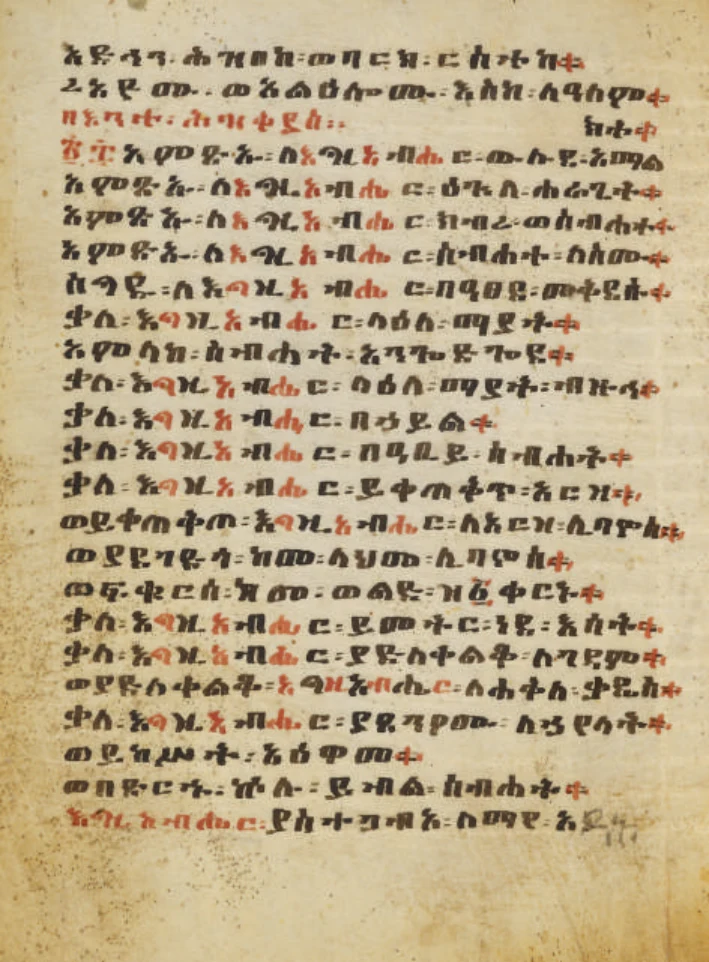 አድኅን፡ ሕዝበከ፡ ወባርክ፡ ርስተከ።
ረአዮሙ፡ ወአልዕሎሙ፡ እስከ፡ ለዓለም።
በእንተ፡ ሕዝቅያስ፡ ክቱ።
፳፰ አምጽኡ፡ ለእግዚአብሔር፡ ውሉደ፡ አማል
አምጽኡ፡ ለእግዚአብሔር፡ ዕጓለ፡ ሐራጊት።
አምጽኡ፡ ለእግዚአብሔር፡ ክብረ፡ ወስብሐተ።
አምጽኡ፡ ለእግዚአብሔር፡ ስብሐተ፡ ለስሙ።
ስግዱ፡ ለእግዚአብሔር፡ በዓፀደ፡ መቅደሱ።
ቃለ፡ እግዚአብሔር፡ ላዕለ፡ ማያት።
አምላከ፡ ስብሐት፡ አንጐድጐደ።
ቃለ፡ እግዚአብሔር፡ ላዕለ፡ ማያት፡ ብዙኅ።
ቃለ፡ እግዚአብሔር፡ በኃይል።
ቃለ፡ እግዚአብሔር፡ በዓቢይ፡ ስብሐት።
ቃለ፡ እግዚአብሔር፡ ይቀጠቅጥ፡ አርዝ።
ወይቀጠቅጦ፡ እግዚአብሔር፡ ለአርዝ፡ ሊባኖስ።
ከመ፡ ላህመ፡ ሊባኖስ።
ወፍቁርሰ፡ ከመ፡ ወልድ፡ ዘ፩ ቀርኑ።
ቃለ፡ እግዚአብሔር፡ ይመትር፡ ነደ፡ እሳት።
ቃለ፡ እግዚአብሔር፡ ያድለቀልቆ፡ ለገዳም።
ወያድለቀልቆ፡ እግዚአብሔር፡ ለሐቅለ፡ ቃዴስ።
ቃለ፡ እግዚአብሔር፡ ያጸንዖሙ፡ ለኃየላት።
ወይከሥት፡ አዕዋመ።
ወበጽርሑ፡ ኵሉ፡ ይብል፡ ስብሐት።
እግዚአብሔር፡ ያስተጋብእ፡ ለማየ፡ አይኅ